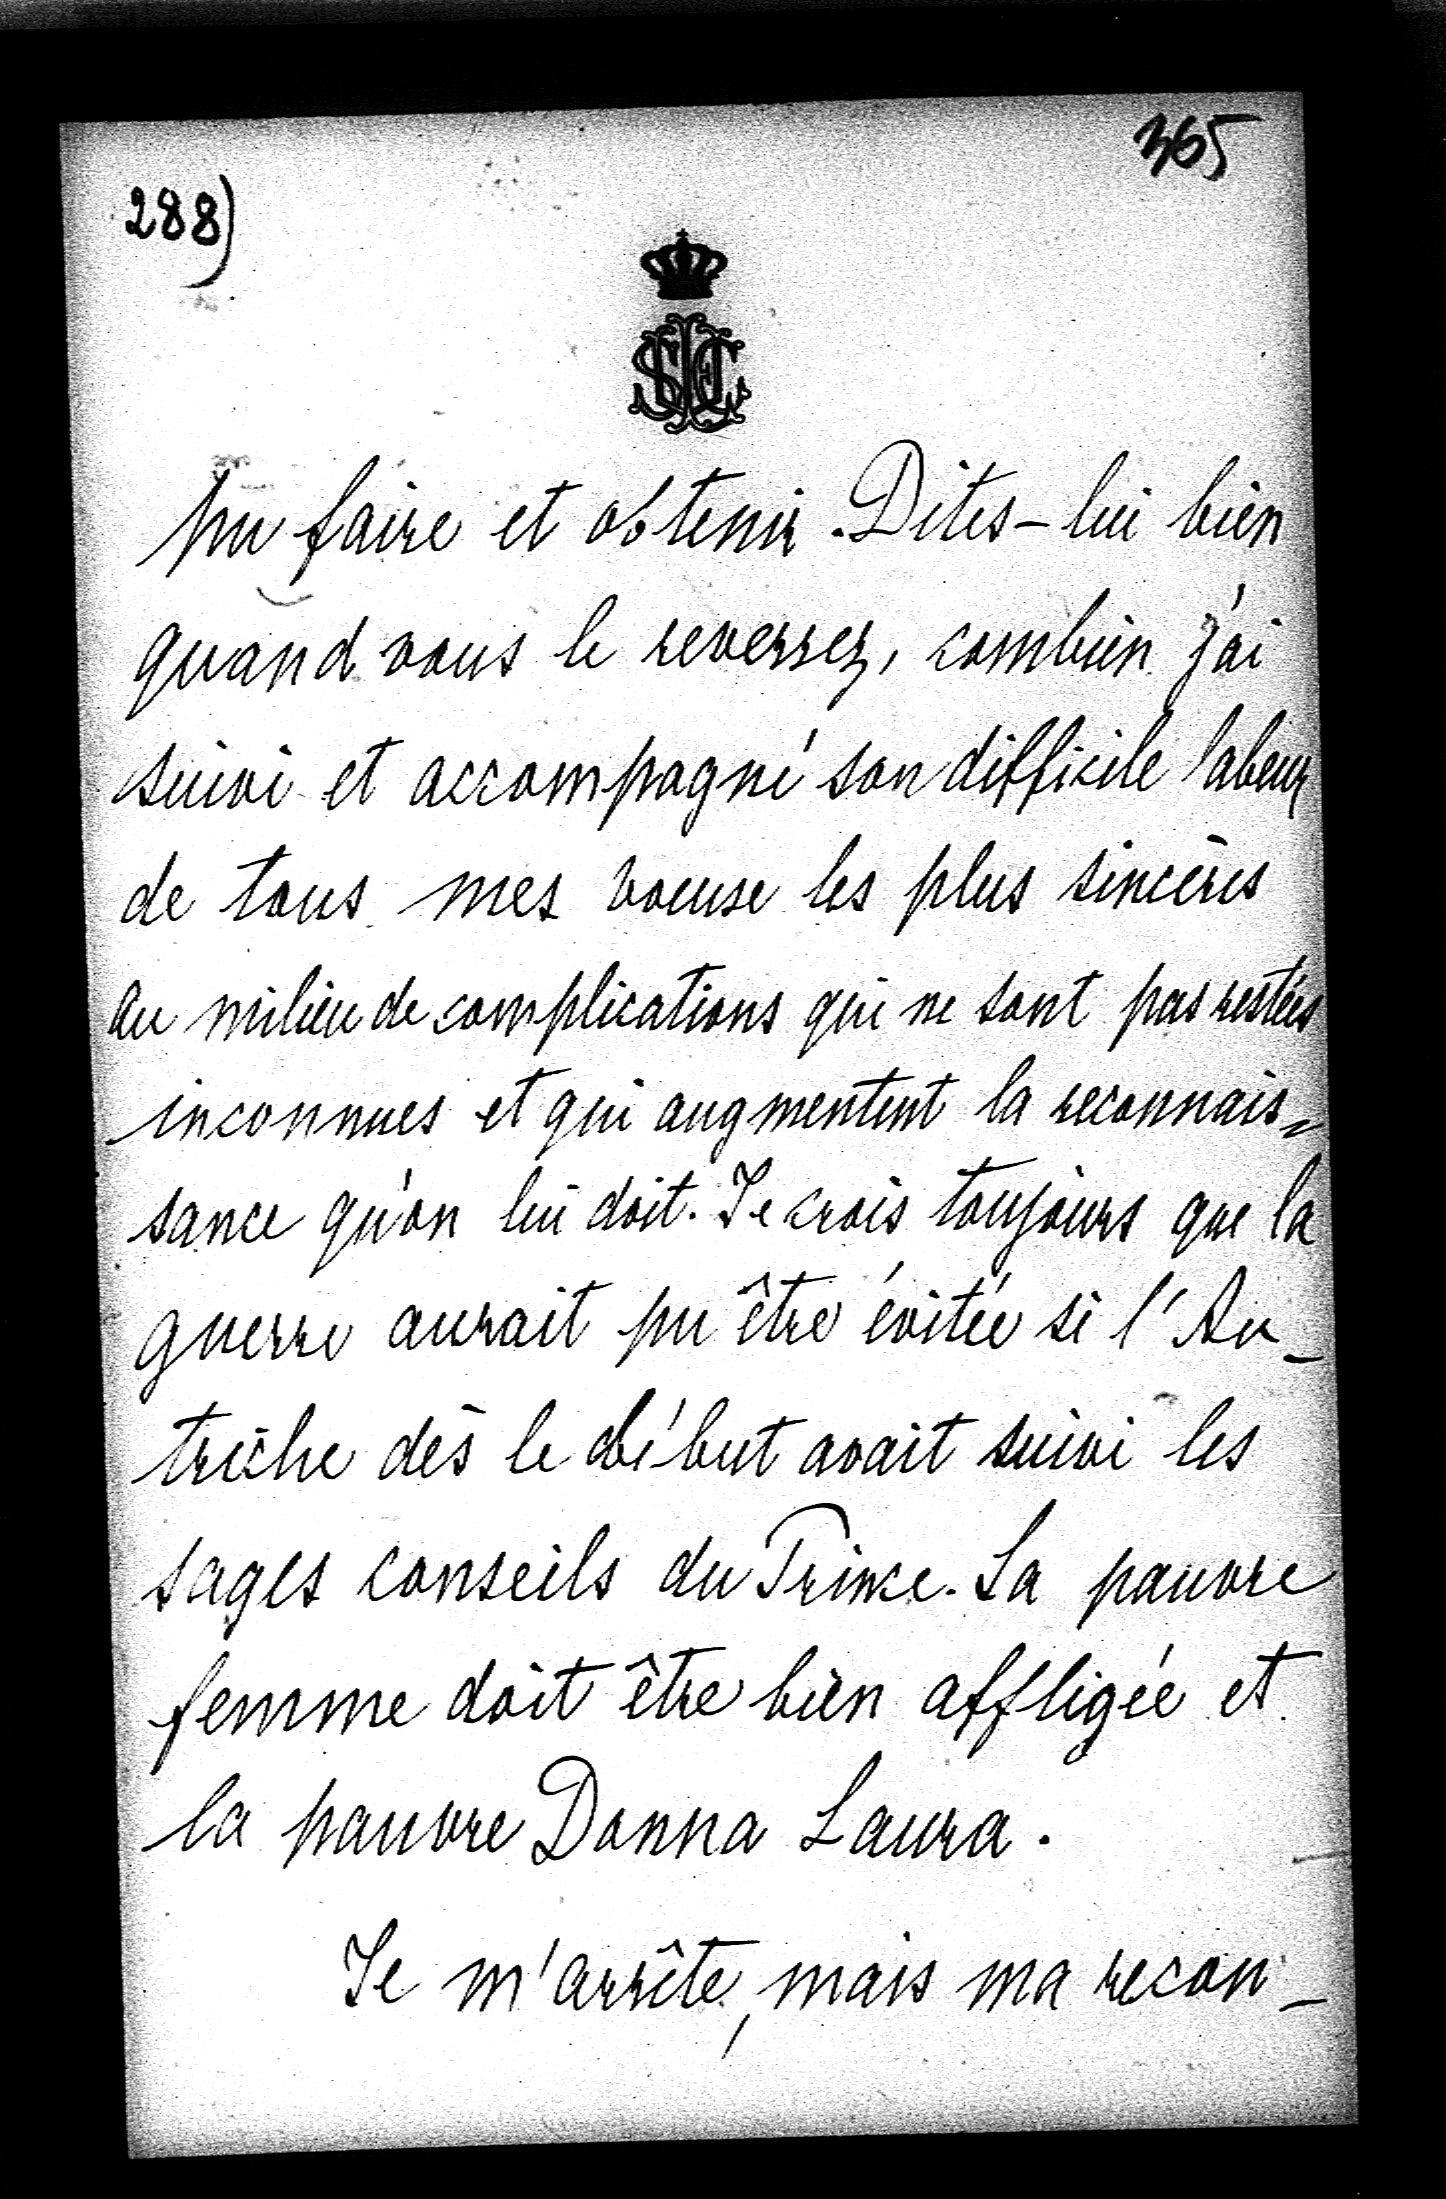 365
288)
pu faire et obtenir. Dites-lui bien
quand vous le reverrez, combien j'ai
suivi et accompagné son difficile labeur
de tous mes voeux les plus sincères
au milieu de complications qui ne sont pas restées
inconnues et qui augmentent la reconnais=
sance qu'on lui doit. Je crois toujours que la
guerre aurait pu être évitée si l'Au-
triche dès le début avait suivi les
sages conseils du Prince. Sa pauvre
femme doit être bien affligée et
la pauvre Donna Laura.
Je m'arrête, mais ma recon-